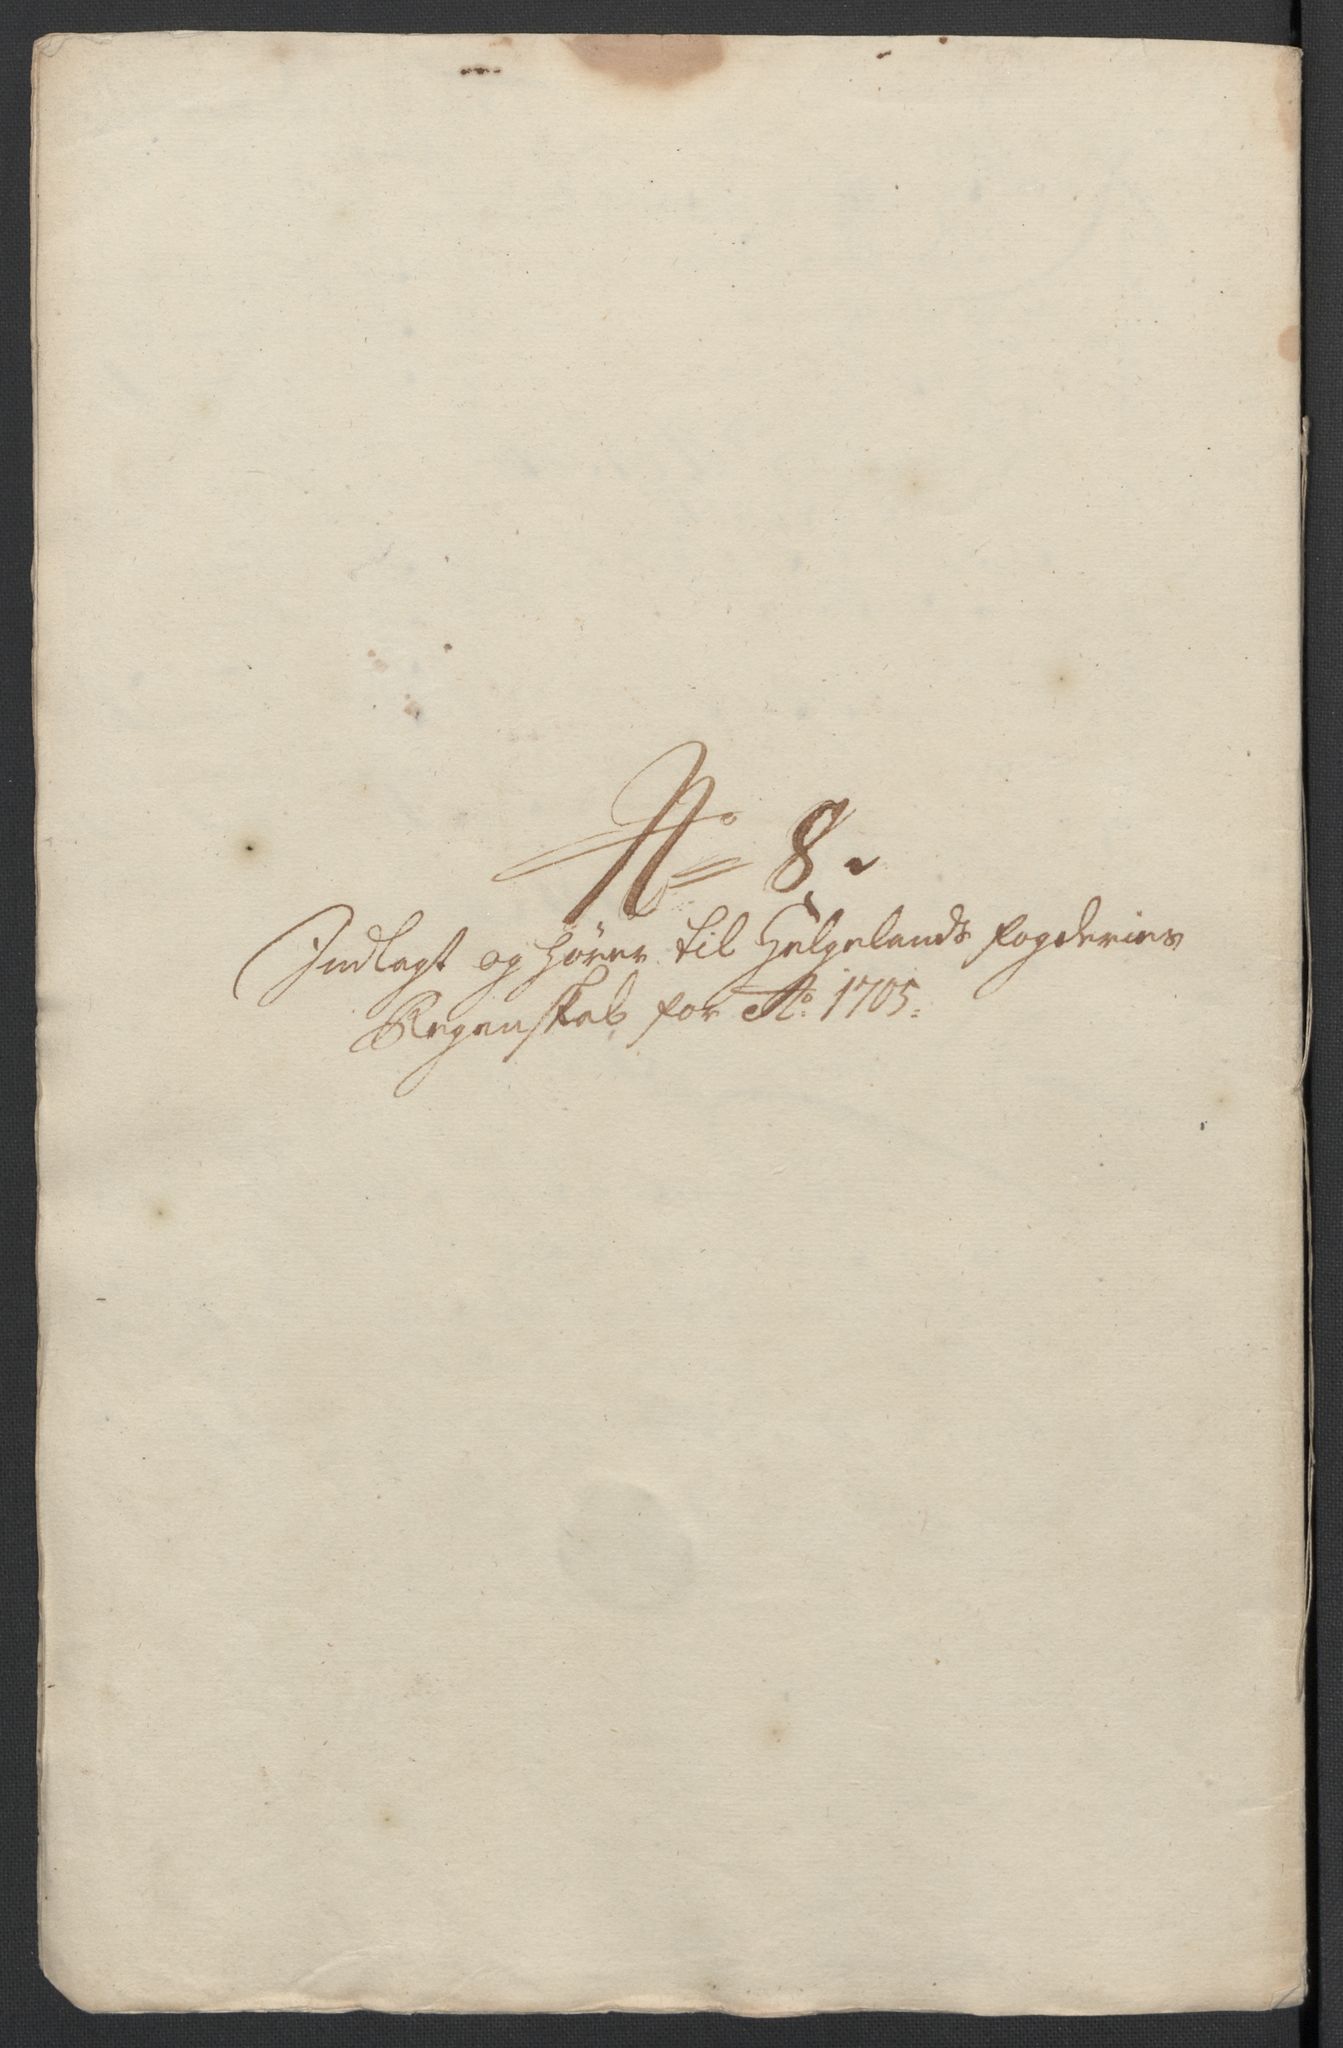 No 8.
Indlagt og hører til Helgelands fogderies
Regenskab for Ao: 1705.